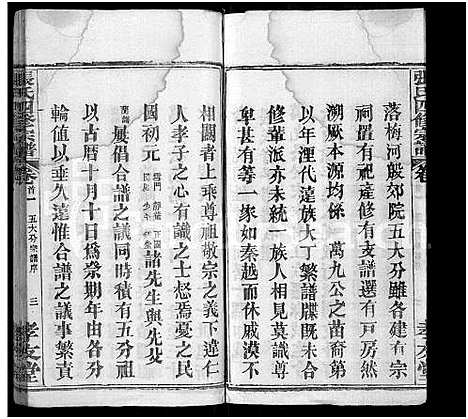 落梅河殷郊院五大分雖各建有宗
祠祖置祀產修有支譜選有戸房然
溯厥本源均係 萬九公之苗裔第
以年湮代遠族大丁繁譜牒既未合
修輩派亦未統一族人相見莫識尊
卑甚有等一家如秦越而行休戚漠不
相關者上乖尊祖敬宗之義下違仁
人孝子之心有識之士愁焉憂之民
國初元 諸先生與先父
屢倡合譜之議同時積有五分祖
以古曆十月十日爲祭期年由各分
輪值以垂久遠惟合譜之議事繁責
張氏四修宗譜 卷首一 五大分宗譜序 三 孝友堂
張氏四修宗譜
孝友堂